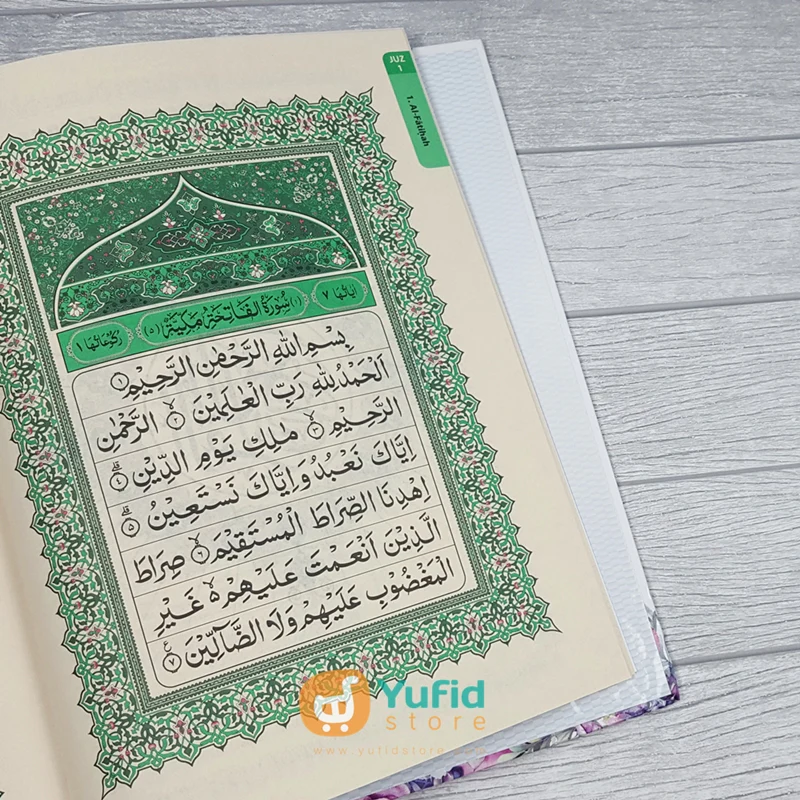 JUZ
1
1. Al-Fātiḥah
اٰيَاتُهَا ٧
(١) سُوْرَةُ الْفَاتِحَةِ مَكِّيَّةٌ (٥)
رُكُوْعَاتُهَا ١
بِسْمِ اللّٰهِ الرَّحْمٰنِ الرَّحِيْمِ ١
اَلْحَمْدُ لِلّٰهِ رَبِّ الْعٰلَمِيْنَ ٢ الرَّحْمٰنِ
الرَّحِيْمِ ٣ مٰلِكِ يَوْمِ الدِّيْنِ ٤
اِيَّاكَ نَعْبُدُ وَاِيَّاكَ نَسْتَعِيْنُ ٥
اِهْدِنَا الصِّرَاطَ الْمُسْتَقِيْمَ ٦ صِرَاطَ
الَّذِيْنَ اَنْعَمْتَ عَلَيْهِمْ ەۙ غَيْرِ
الْمَغْضُوْبِ عَلَيْهِمْ وَلَا الضَّاۤلِّيْنَ ࣖ ٧
Yufid
store
www.yufidstore.com